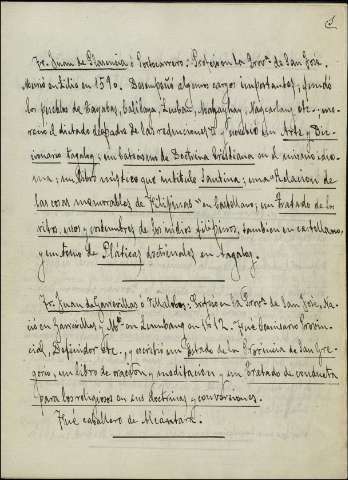 Fr. Juan de Plasencia ó Portocarrero: Profesó en la Prov.ª de San José.
Murió en Lilio en 1590. Desempeñó algunos cargos importantes, fundó
los pueblos de Tayabas, Calilaya, Lucban, Mahayhay, Nagcarlan, etc., me-
reció el dictado de padre de las reducciones y escribió un Arte y Dic-
cionario tagalog; un Catecismo de Doctrina Cristiana en el mismo idio-
ma; un libro místico que intituló Santina; una Relacion de
las cosas memorables de Filipinas en Castellano; un Tratado de los
ritos, usos y costumbres de los indios filipinos, tambien en castellano,
y un tomo de Pláticas doctrinales en tagalog.
Fr. Juan de Garrovillas ó Villalobos: Profesó en la Prov.ª de San José, Na-
ció en Garrovillas y M.º en Lumbang en 1612. Fué Comisario Provin-
cial, Definidor etc., y escribió un Estado de la Provincia de San Gre-
gorio, un libro de oración y meditacion y un Tratado de conducta
para los religiosos en sus doctrinas y conversiones.
Fué caballero de Alcántara.